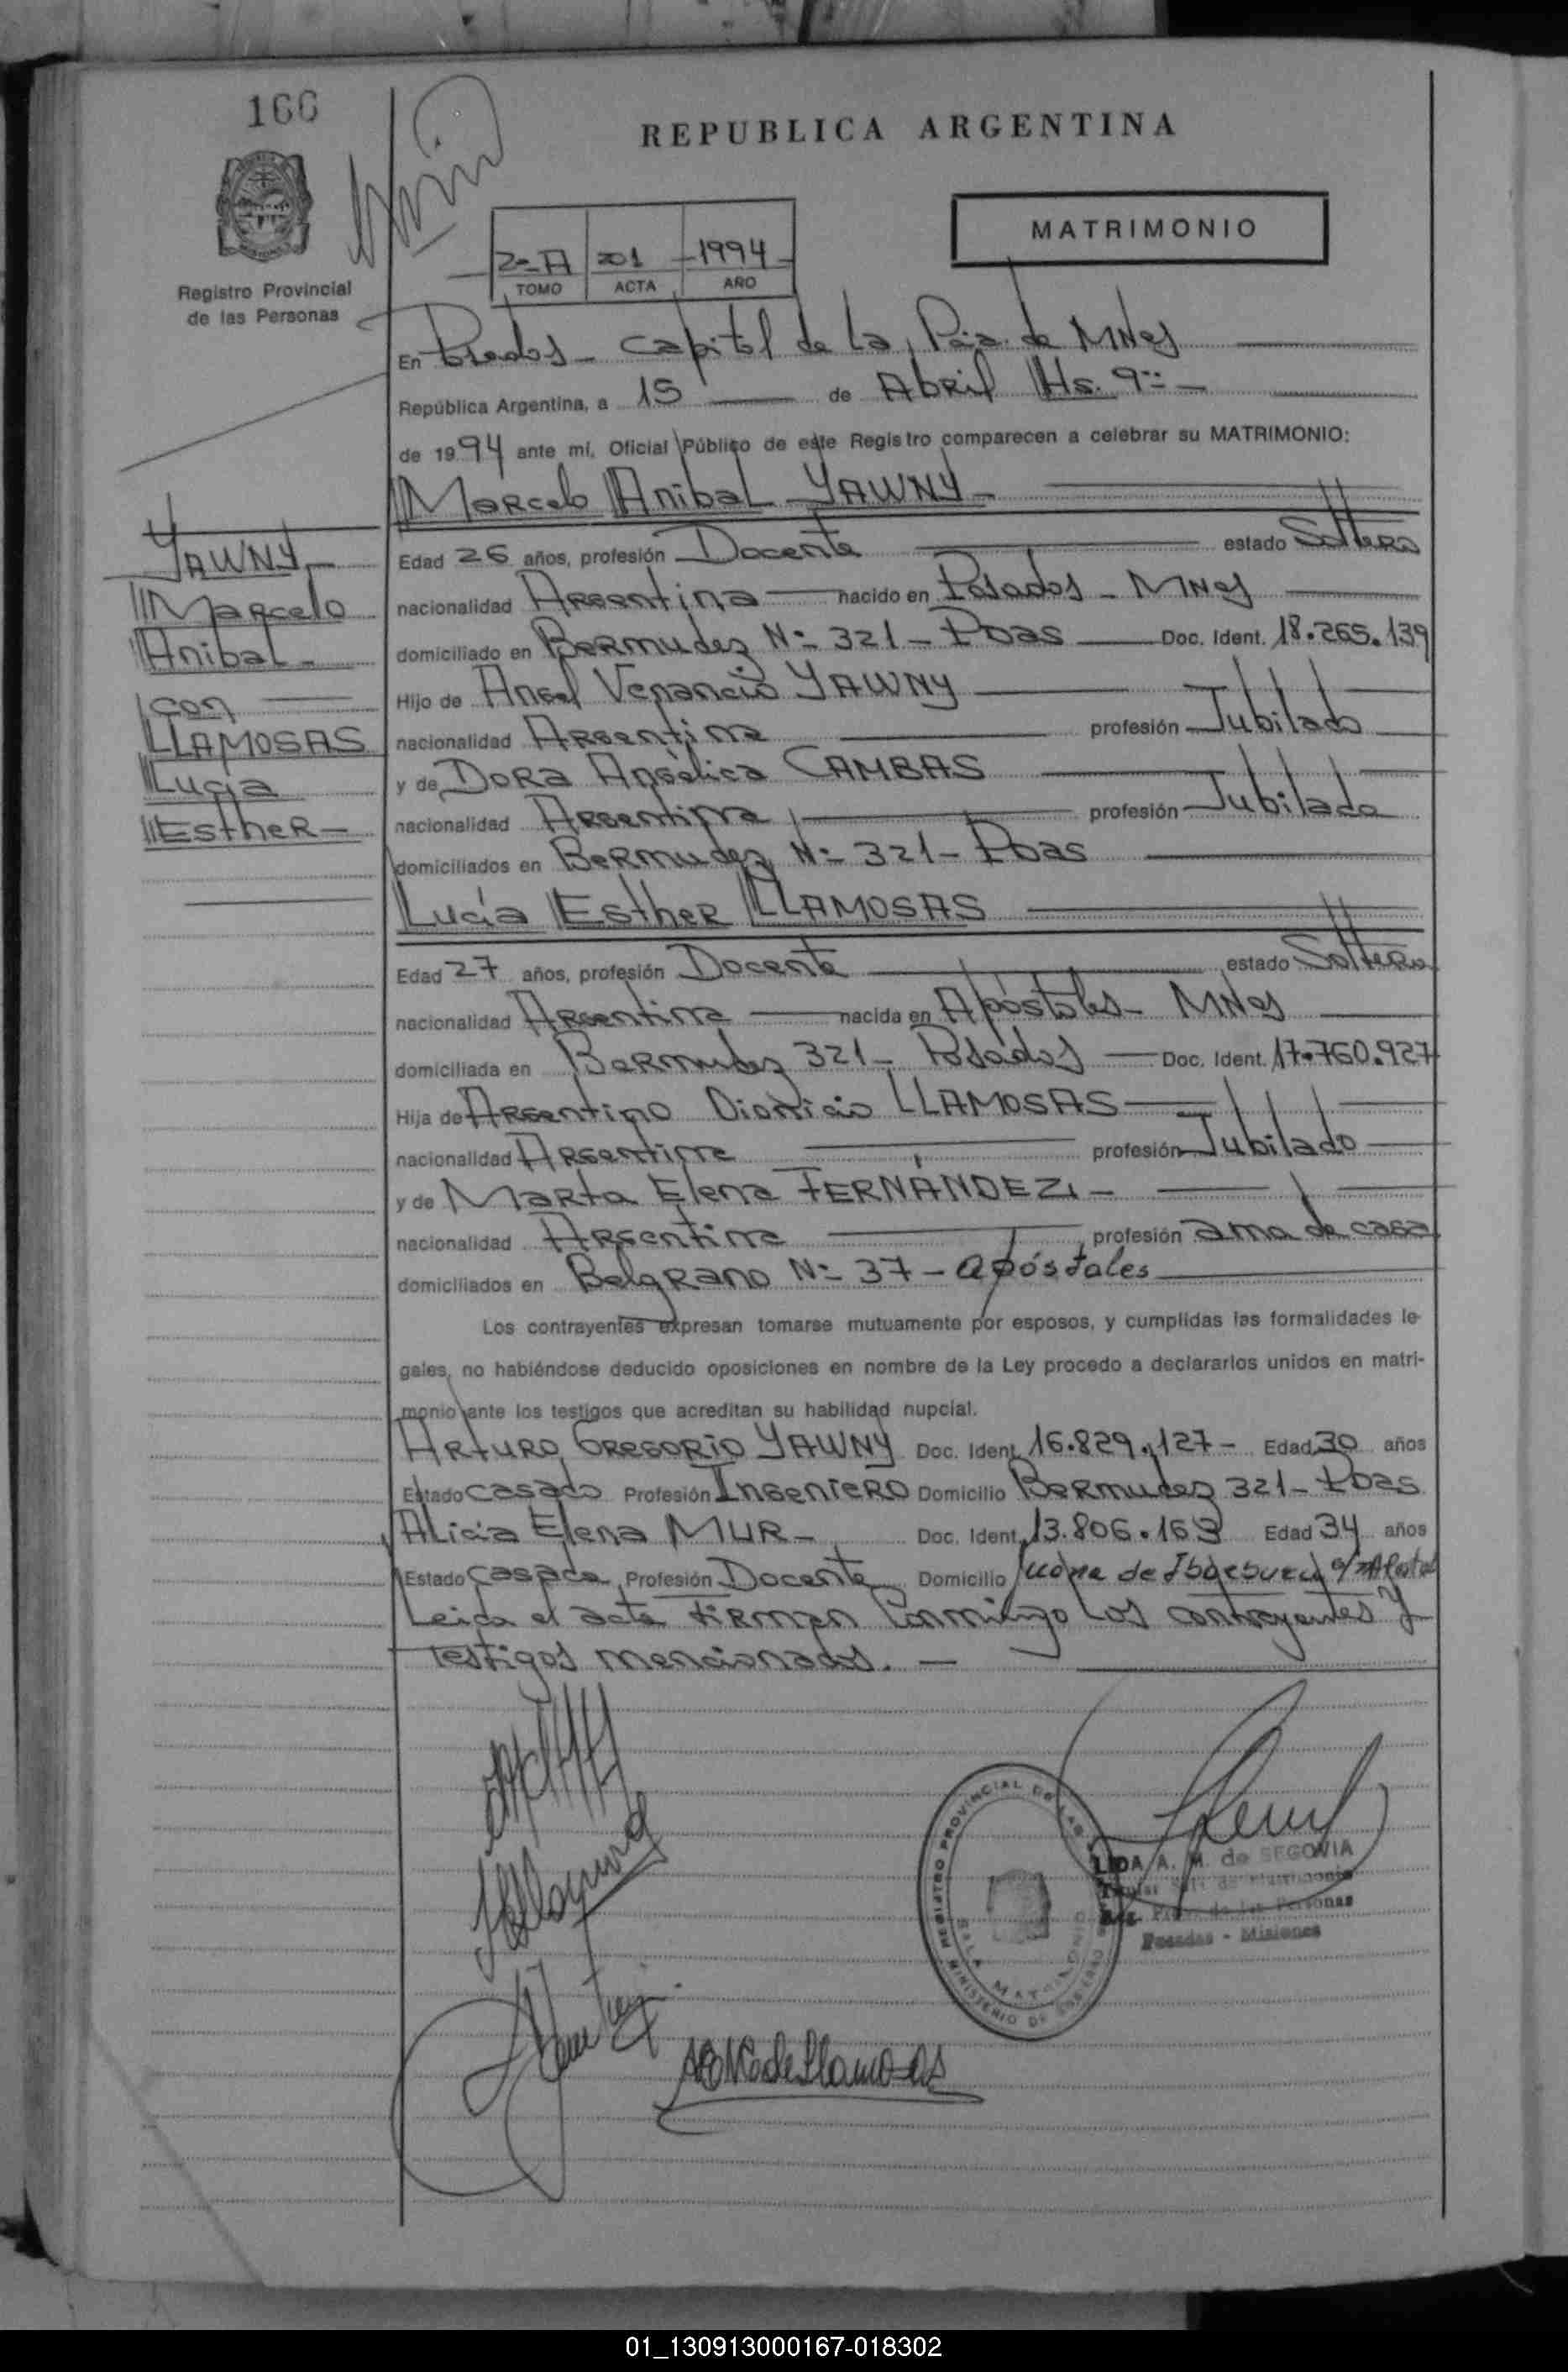 166
REPUBLICA ARGENTINA
MATRIMONIO
Registro Provincial
de las Personas
2-A 201 1994
TOMO ACTA AÑO
En Posadas - Capital de La Pcia. de MNes
República Argentina, a 15 de Abril Hs. 9
de 1994 ante mí, Oficial Público de este Registro comparecen a celebrar su MATRIMONIO:
Marcelo Anibal YAWNY -
YAWNY -
Marcelo
Anibal -
con
LLAMOSAS
Lucia
Esther -
Edad 26 años, profesión Docente estado Soltero
nacionalidad Argentina nacido en Posadas - MNes
domiciliado en Bermudez Nº 321 - Pdas Doc. Ident. 18.265.139
Hijo de Angel Venancio YAWNY
nacionalidad Argentina profesión Jubilado
y de Dora Angélica CAMBAS
nacionalidad Argentina profesión Jubilada
domiciliados en Bermudez Nº 321 - Pdas
Lucia Esther LLAMOSAS
Edad 27 años, profesión Docente estado Soltera
nacionalidad Argentina nacida en Apóstoles - MNes
domiciliada en Bermudez 321 - Posadas Doc. Ident. 17.760.927
Hija de Argentino Dionicio LLAMOSAS
nacionalidad Argentina profesión Jubilado
y de Marta Elena FERNÁNDEZ -
nacionalidad Argentina profesión ama de casa
domiciliados en Belgrano Nº 37 - apóstoles
Los contrayentes expresan tomarse mutuamente por esposos, y cumplidas las formalidades le-
gales, no habiéndose deducido oposiciones en nombre de la Ley procedo a declararlos unidos en matri-
monio ante los testigos que acreditan su habilidad nupcial.
Arturo Gregorio YAWNY Doc. Ident. 16.829.127 - Edad 30 años
Estado casado Profesión Ingeniero Domicilio Bermudez 321 - Pdas
Alicia Elena MUR - Doc. Ident. 13.806.163 Edad 34 años
Estado Casada Profesión Docente Domicilio Juana de Ibarbourou
Leida el acta firman conmigo los contrayentes y
testigos mencionados. -
REGISTRO PROVINCIAL DE LAS
SALA MATRIMONIO
MINISTERIO DE GOBIERNO
LIDA A. M. de SEGOVIA
Posadas - Misiones
01_130913000167-018302